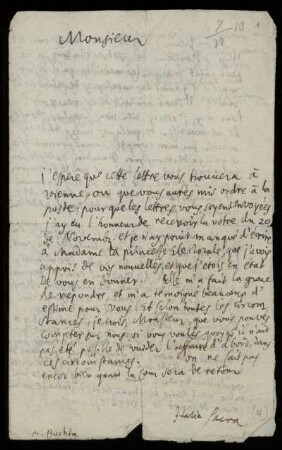 7 10 1
Monsieur
j'espere que cette lettre vous trouvera à
vienne, ou que vous aurés mis ordre à la
poste, pour que les lettres vous soyent envoyées
j'ay eu l'honneur de recevoir la votre du 20
de Novembr. et je n'ay point manqué d'ecrire
à Madame la princesse que j'avois
appris de vos nouvelles et que j'etois en état
de vous en donner. Elle m'a fait la grace
de repondre, et m'a temoigné beaucoup d'
estime pour vous. et selon toutes les circom
stances, je crois, Monsieur, que vous pouvés
compter sur nous, si vous voulés. il n'aura
pas été possible de vuider l'affaire d'abord, dans
ces circomstances. on ne sait pas
encor bien quand la cour sera de retour
Italia Sacra